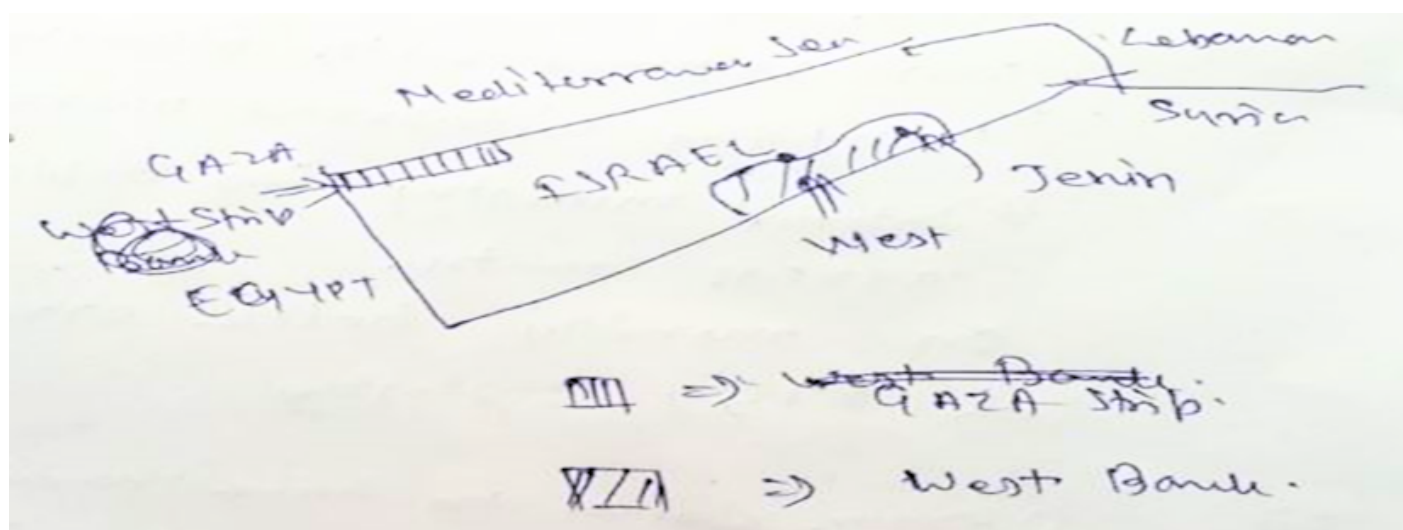 Mediterranean Sea
Lebanon
Syria
GAZA
Strip
EGYPT
ISRAEL
Jenin
West
⇒ West Bank.
GAZA Strip.
⇒ West Bank.